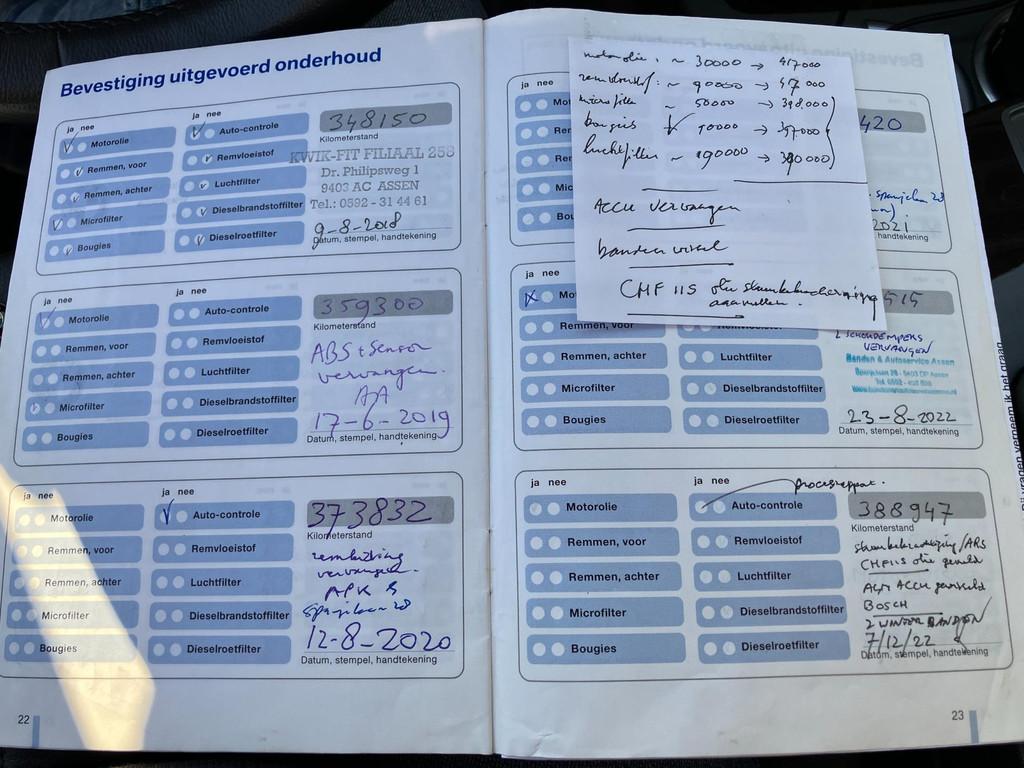 Bevestiging uitgevoerd onderhoud
ja nee
ja nee
Motorolie
Auto-controle
348150
Kilometerstand
Remmen, voor
Remvloeistof
KWIK-FIT FILIAAL 258
Dr. Philipsweg 1
Remmen, achter
Luchtfilter
9403 AC ASSEN
Tel.: 0592 - 31 44 61
Microfilter
Dieselbrandstoffilter
9-8-2018
Bougies
Dieselroetfilter
Datum, stempel, handtekening
ja nee
ja nee
Motorolie
Auto-controle
359300
Kilometerstand
Remmen, voor
Remvloeistof
ABS + Sensor
vervangen.
Remmen, achter
Luchtfilter
Microfilter
Dieselbrandstoffilter
17-6-2019
Bougies
Dieselroetfilter
Datum, stempel, handtekening
ja nee
ja nee
Motorolie
Auto-controle
373832
Kilometerstand
Remmen, voor
Remvloeistof
remleiding
vervangen.
Remmen, achter
Luchtfilter
APK
Microfilter
Dieselbrandstoffilter
12-8-2020
Bougies
Dieselroetfilter
Datum, stempel, handtekening
22
motorolie: ~ 30000 → 417000
remvloeistof: ~ 90000 → 417000
microfilter ~ 50000 → 398.000
bougies
luchtfilter ~ 190000
accu vervangen
bandenwissel
CHF 11S olie stuurbekrachtiging
aanvullen.
ja nee
Mot
420
Rem
Rem
Mic
Bou
2021
handtekening
ja nee
Mo
515
Remmen, voor
Remvloeistof
2 SCHOKDEMPERS
VERVANGEN
Remmen, achter
Luchtfilter
Banden & Autoservice Assen
Microfilter
Dieselbrandstoffilter
23-8-2022
Bougies
Dieselroetfilter
Datum, stempel, handtekening
ja nee
ja nee
Motorolie
Auto-controle
388947
Kilometerstand
Remmen, voor
Remvloeistof
stuurbekrachtiging/ARS
CHF11S olie gevuld
Remmen, achter
Luchtfilter
ACCU gewisseld
BOSCH
Microfilter
Dieselbrandstoffilter
2 WINTER BANDEN
7/12/22
Bougies
Dieselroetfilter
Datum, stempel, handtekening
23
vragen verneem ik het graag